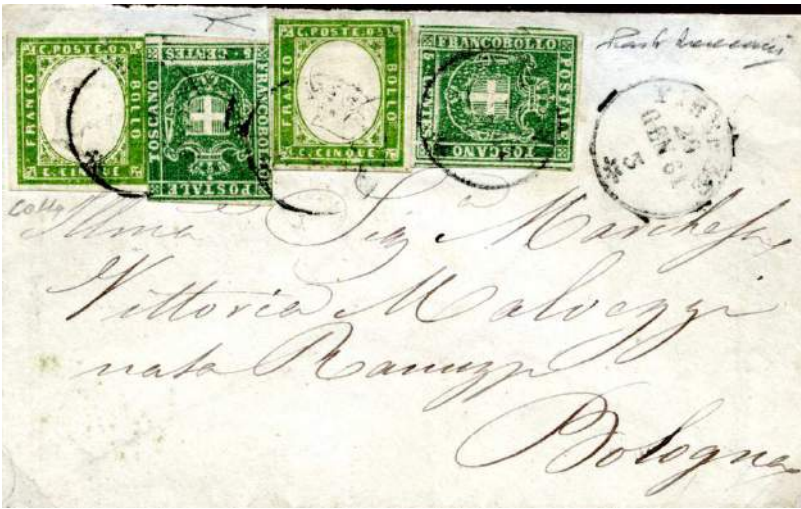 C. POSTE 05
FRANCO BOLLO
C. CINQUE
5 CENTES
FRANCOBOLLO
TOSCANO
POSTALE
C. POSTE 05
FRANCO BOLLO
C. CINQUE
FRANCOBOLLO
POSTALE
TOSCANO
5 CENTES
20
GEN 61
5
Illma Sig Marchesa
Vittoria Malvezzi
nata Ranuzzi
Bologna